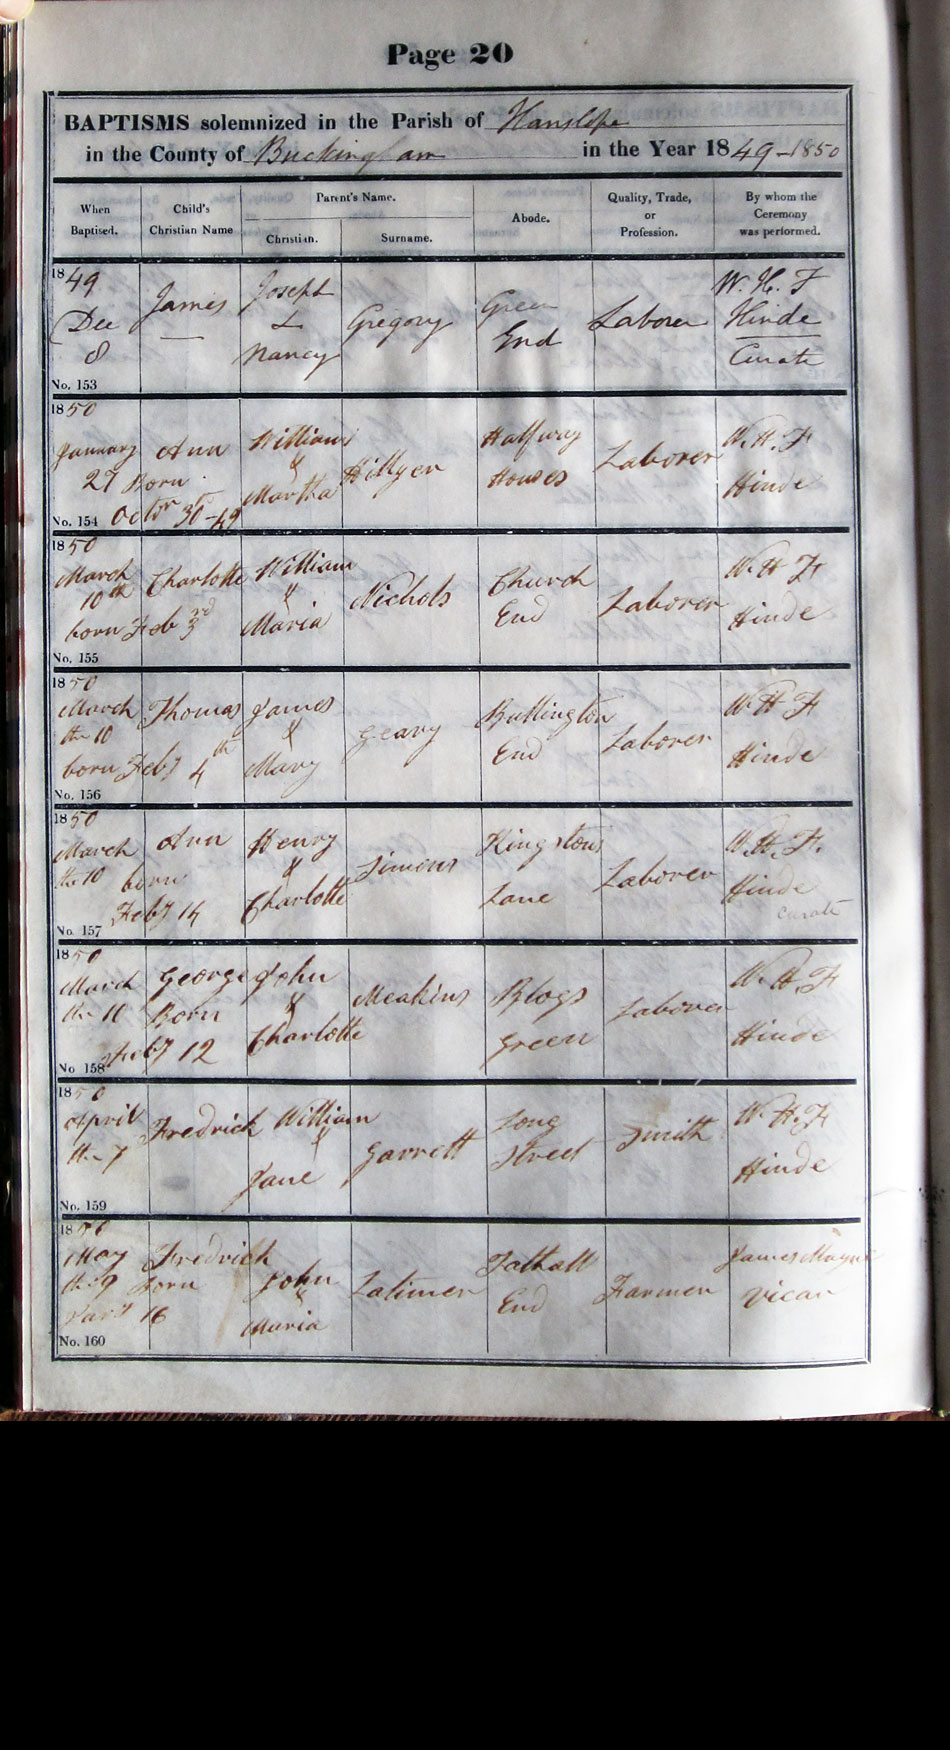 Page 20
BAPTISMS solemnized in the Parish of Hanslope
in the County of Buckingham in the Year 1849-1850
When Baptised. Child's Christian Name Parent's Name. Christian. Surname. Abode. Quality, Trade, or Profession. By whom the Ceremony was performed.
1849
Dec 8
James
Joseph & Nancy
Gregory
Green End
Laborer
W. H. F Hinde Curate
No. 153
1850
January 27
Ann
Born Octbr 30-49
William & Martha
Hillyer
Halfway Houses
Laborer
W. H. F Hinde
No. 154
1850
March 10th
Charlotte
born Feb 3rd
William & Maria
Nichols
Church End
Laborer
W. H F Hinde
No. 155
1850
March the 10
Thomas
born Feby 4th
James & Mary
Geary
Bullington End
Laborer
W H F Hinde
No. 156
1850
March the 10
Ann
born Feby 14
Henry & Charlotte
Simons
Kingstons Lane
Laborer
W. H. F. Hinde curate
No. 157
1850
March the 10
George
Born Feby 12
John & Charlotte
Meakins
Blogs Green
Laborer
W. H. F Hinde
No. 158
1850
April the 7
Fredrick
William & Jane
Garrett
Long Street
Smith
W. H. F Hinde
No. 159
1850
May the 9
Fredrick
Born 16
John & Maria
Latimer
Tathall End
Farmer
James Mayne Vicar
No. 160